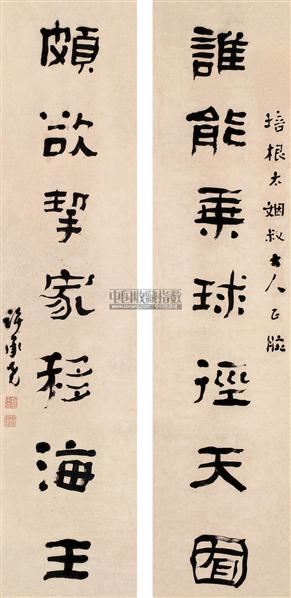 培根太姻叔大人正腕
誰能乘球徑天
頗欲挈家移海王
許承堯
中国收藏指数